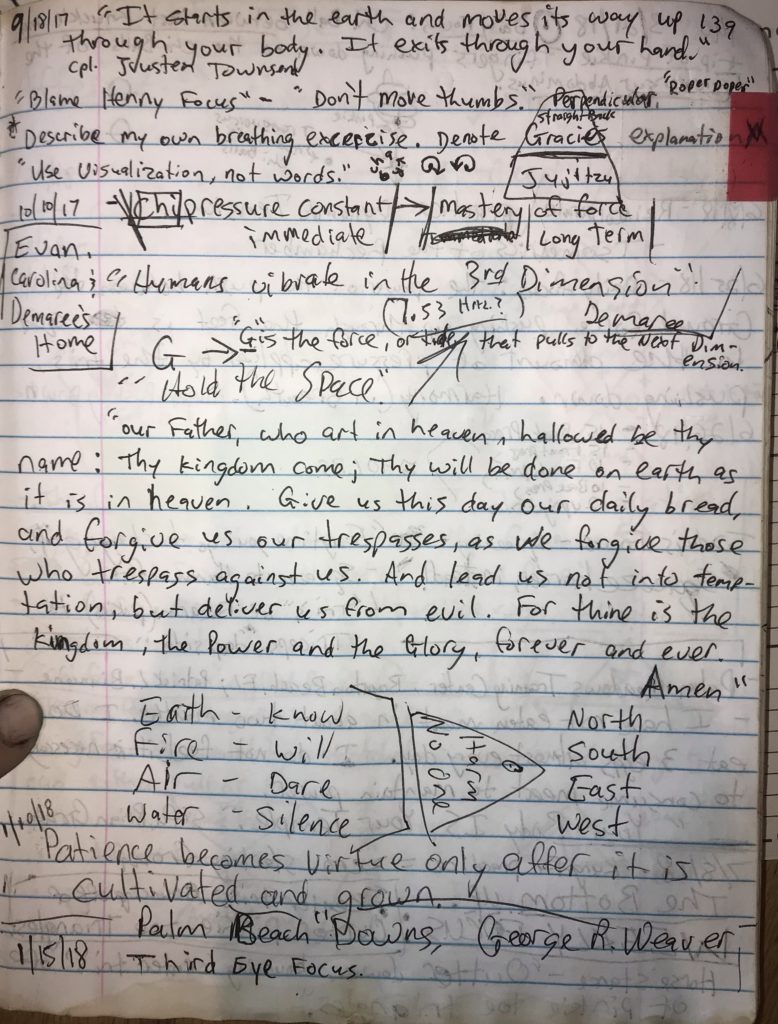 9/18/17 "It starts in the earth and moves its way up 139
through your body. It exits through your hand."
Cpl. Townsend
"Blame Henny Focus" - "Don't move thumbs." Perpendicular. "Roper Doper"
straight
* Describe my own breathing excercise. Denote Gracies explanation
"Use visualization, not words." Jujitzu
10/10/17 → Chi pressure constant → mastery of force
immediate Long Term
Evan,
Carolina &
Demaree's
Home
"Humans vibrate in the 3rd Dimension"
(7.53 Hrz.?) Demaree
G → "G" is the force, or tide, that pulls to the next Dim-
ension.
"Hold the Space."
"our Father, who art in heaven, hallowed be thy
name: Thy kingdom come; Thy will be done on earth as
it is in heaven. Give us this day our daily bread,
and forgive us our trespasses, as we forgive those
who trespass against us. And lead us not into temp-
tation, but deliver us from evil. For thine is the
Kingdom, the Power and the Glory, forever and ever.
Amen"
Earth - Know North
Fire - Will South
Air - Dare East
Water - Silence West
Harm
No One
1/10/18
Patience becomes virtue only after it is
cultivated and grown.
Palm Beach "Downs, George R. Weaver
1/15/18 Third Eye Focus.